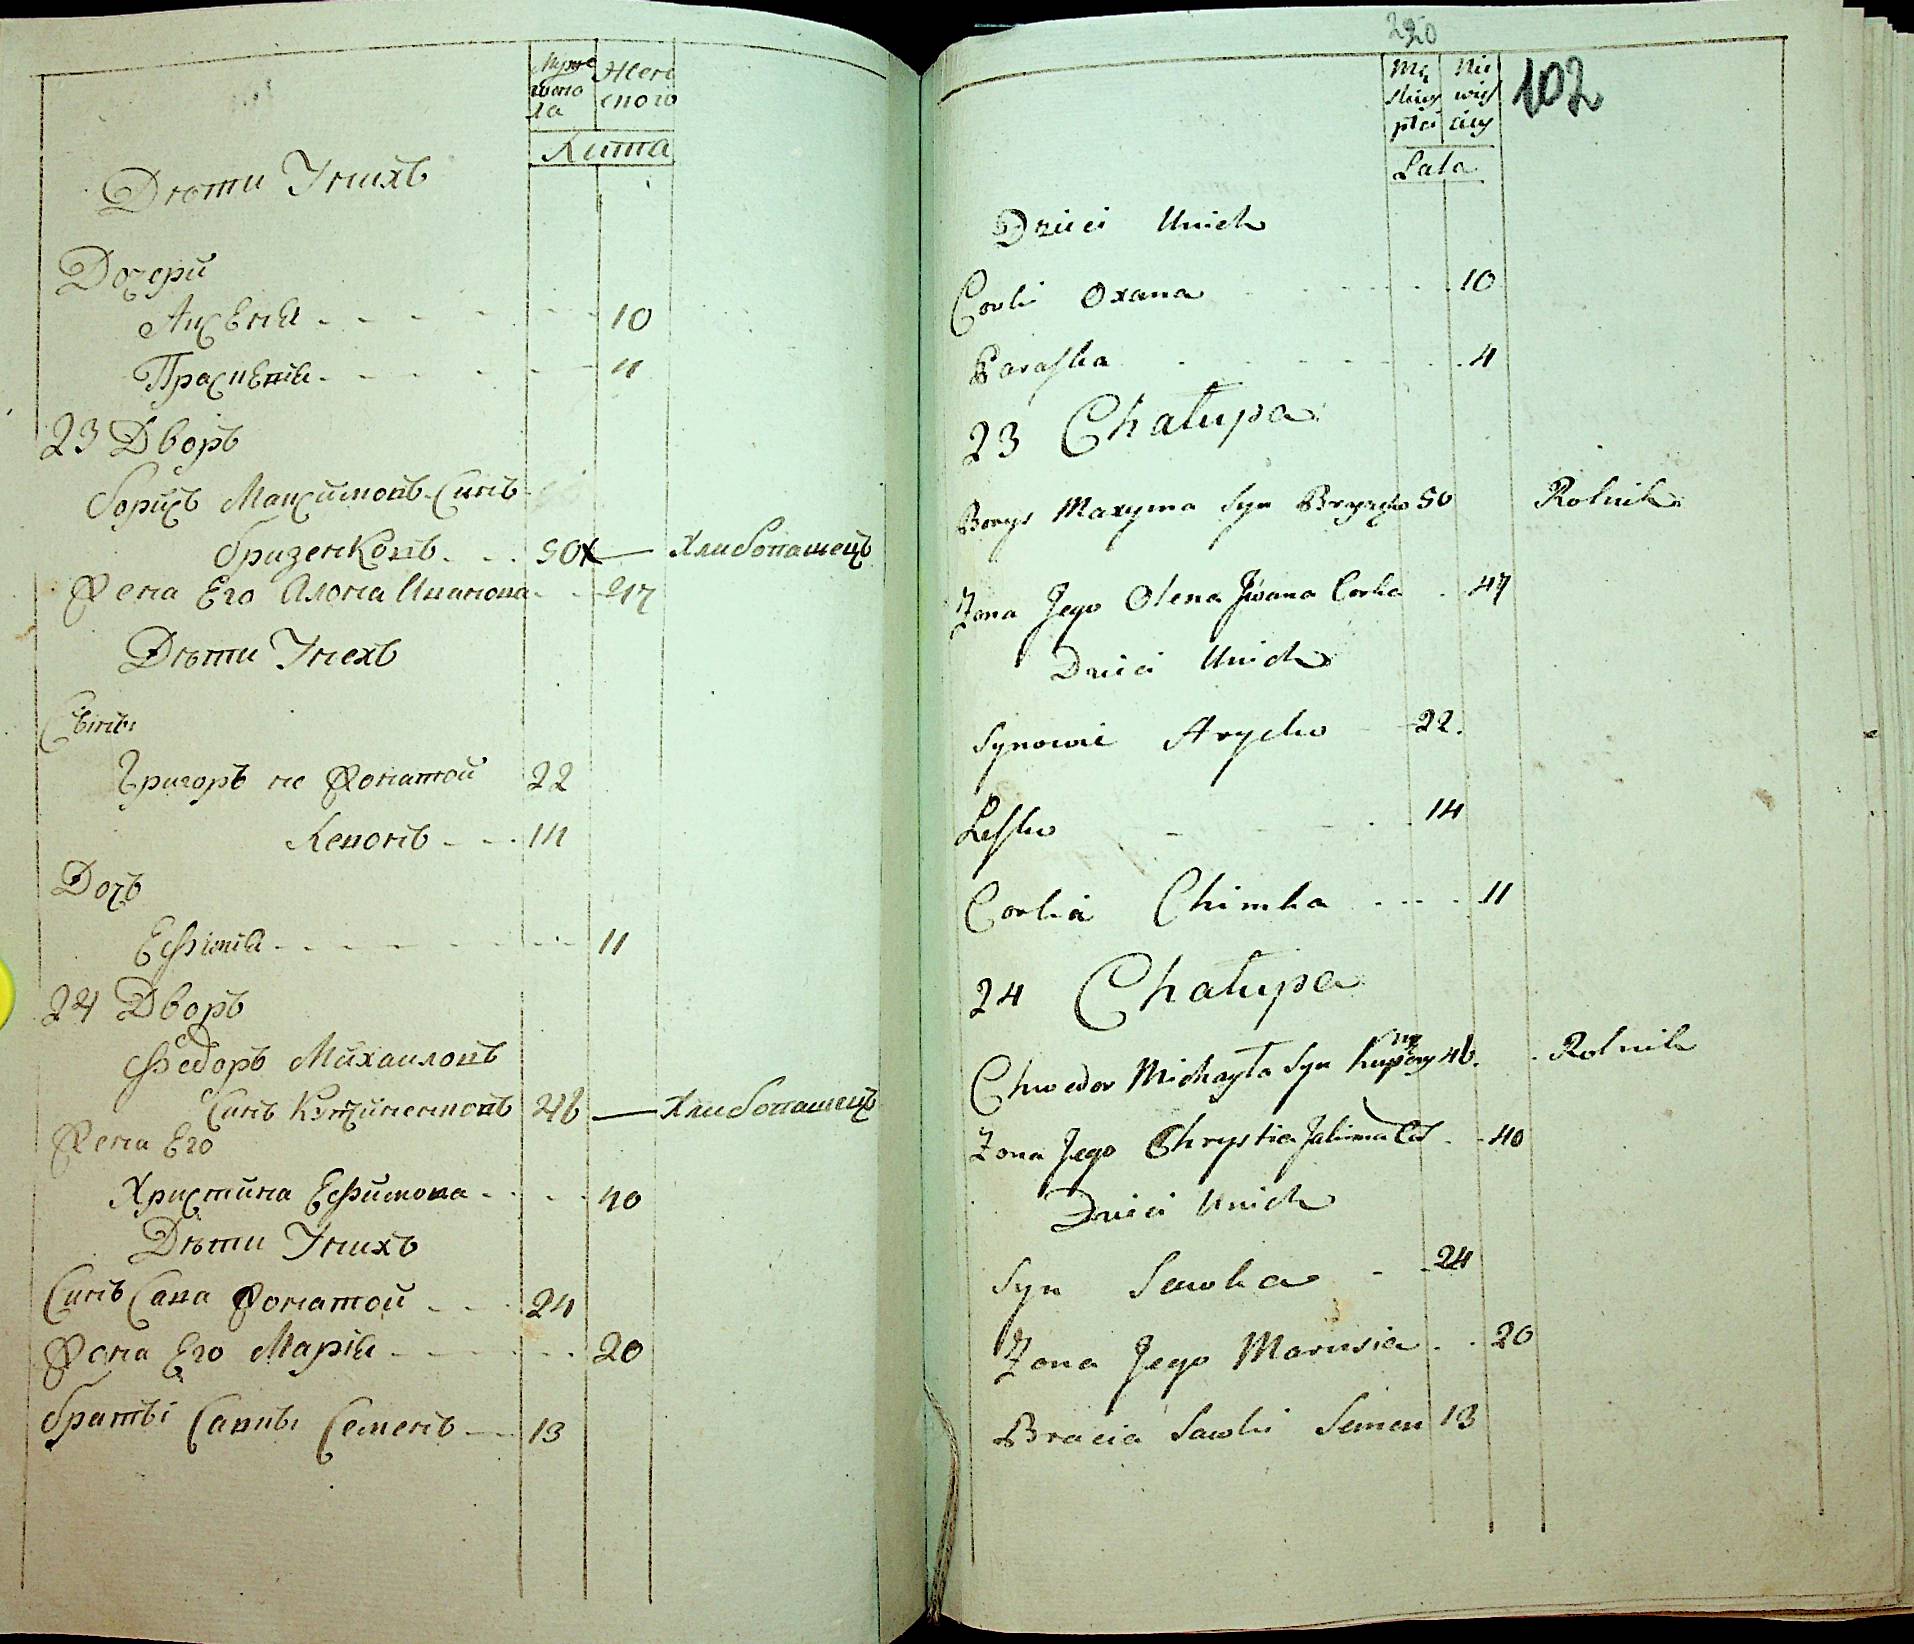 Мужеска пола
Женского
Лѣта
Дѣти Унихъ
Дочери
Аксѣнія 10
Прасцѣвія 4
23 Дворъ
Борисъ Максимовъ Синъ
Бризенковъ 50 Хлибопашецъ
Жена Его Алона Иванова 47
Дѣти Унехъ
Сыны
Григоръ не Жонатой 22
Левонъ 14
Дочъ
Ефимія 11
24 Дворъ
Федоръ Михаиловъ
Синъ 46 Хлибопашецъ
Жена Его
Христина Ефимова 40
Дѣти Унихъ
Синъ Сава Жонатой 24
Жона Его Марія 20
Братъі Савны Семенъ 13
220
102
Męskiey płci
Niewieściey
Lata
Dzieci Unich
Corki Oxana 10
Paraska 4
23 Chałupa
Borys Maxyma Syn 50 Rolnik
Zona Jego Olena Jwana Corka 47
Dzieci Unich
Synowie Hryćko 22.
Lesko 14
Corka Chimka 11
24 Chałupa
Chwedor Michayła Syn 46. Rolnik
Zona Jego Chrystia Jakima Cor 40
Dzieci Unich
Syn Sawka 24
Zona Jego Marusia 20
Bracia Sawki Semen 13